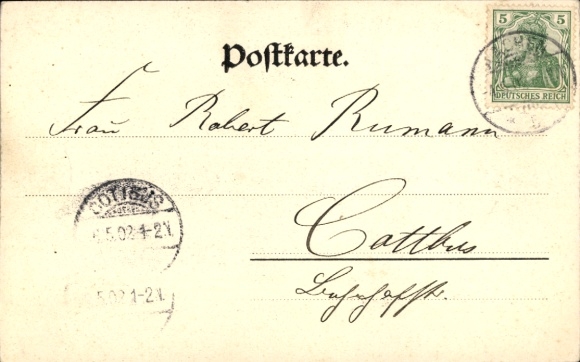 Postkarte.
5 5
DEUTSCHES REICH
Frau Robert Rumann
COTTBUS
5.02 1-2N.
Cottbus
Bahnhofstr.
5.02 1-2N.